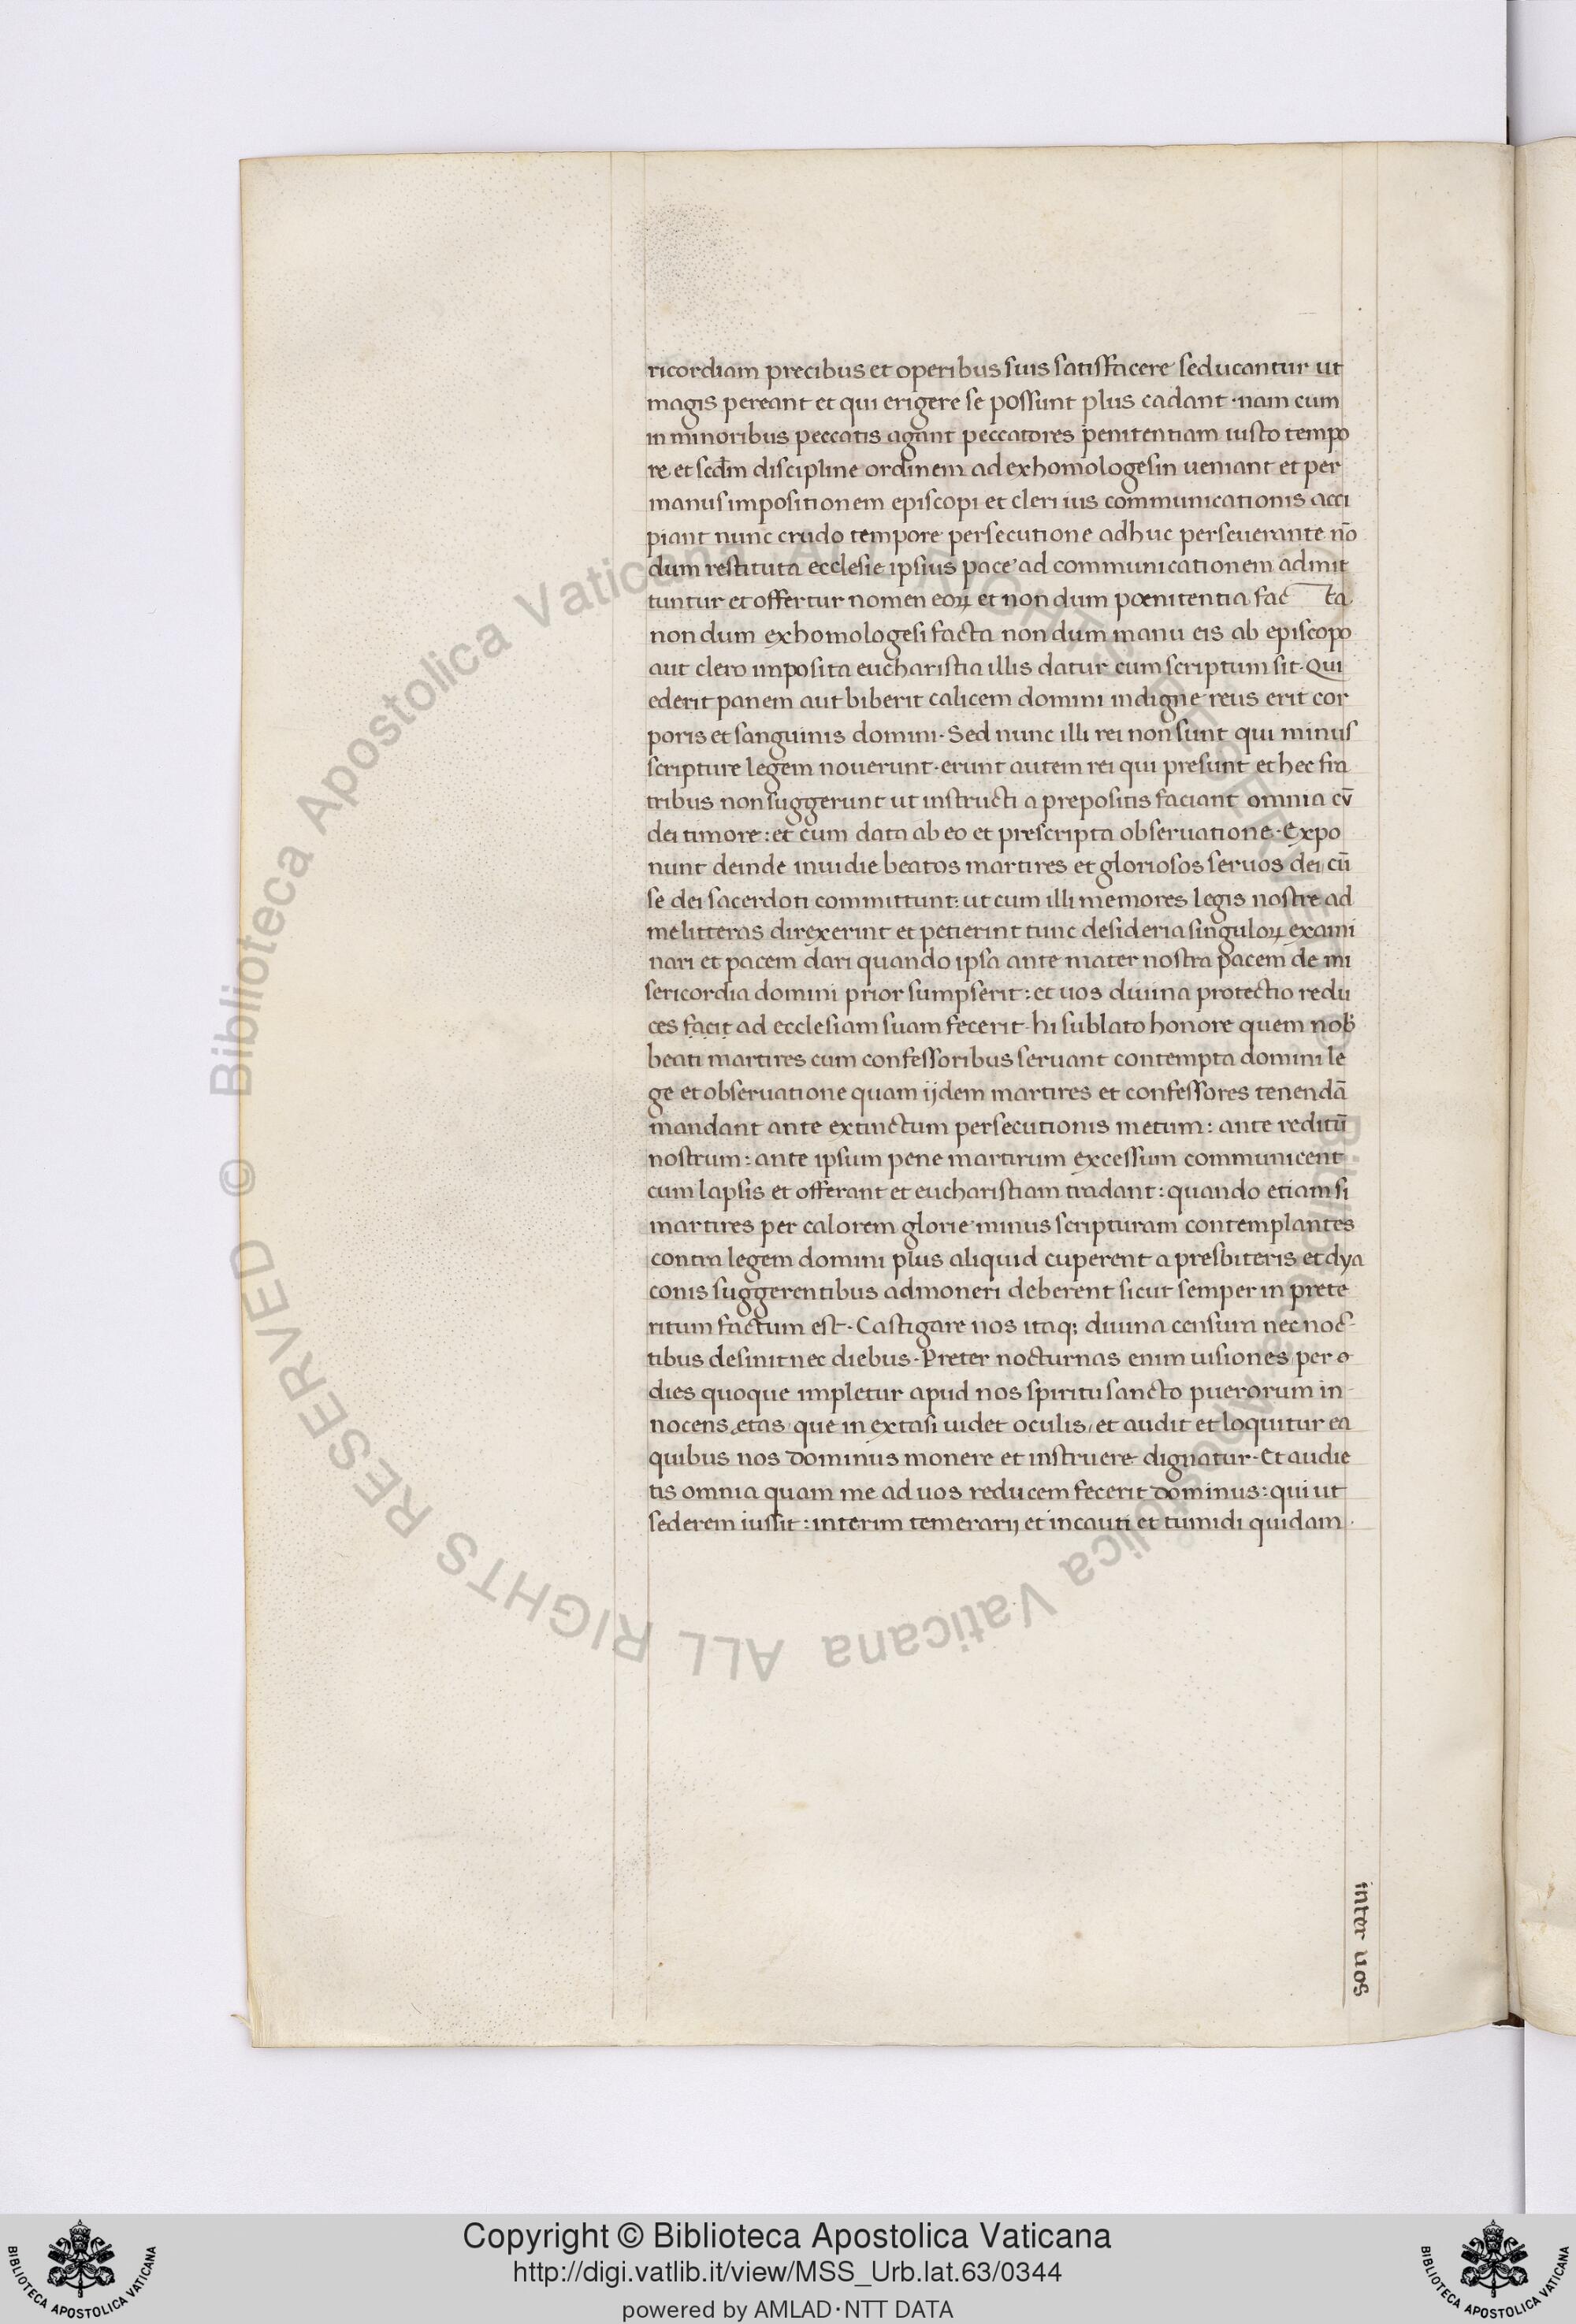 ricordiam precibus et operibus suis satisfacere seducantur ut
magis pereant et qui erigere se possunt plus cadant · nam cum
in minoribus peccatis agant peccatores penitentiam iusto tempo
re et scdm̄ discipline ordinem ad exhomologesin ueniant et per
manus impositionem episcopi et cleri ius communicationis acci
piant nunc crudo tempore persecutione adhuc perseuerante nō
dum restituta ecclesie ipsius pace ad communicationem admit
tuntur et offertur nomen eoꝝ et non dum pœnitentia fac ta
non dum exhomologesi facta non dum manu eis ab episcopo
aut clero imposita eucharistia illis datur cum scriptum sit · Qui
ederit panem aut biberit calicem domini indigne reus erit cor
poris et sanguinis domini · Sed nunc illi rei non sunt qui minus
scripture legem nouerunt · erunt autem rei qui presunt et hec fra
tribus non suggerunt ut instructi a prepositis faciant omnia cv̄
dei timore : et cum data ab eo et prescripta obseruatione · Expo
nunt deinde inuidie beatos martires et gloriosos seruos dei cū
se dei sacerdoti committunt : ut cum illi memores legis nostre ad
me litteras direxerint et petierint tunc desideria singuloꝝ exami
nari et pacem dari quando ipsa ante mater nostra pacem de mi
sericordia domini prior sumpserit : et uos diuina protectio redu
ces facit ad ecclesiam suam fecerit · hi sublato honore quem nob
beati martires cum confessoribus seruant contempta domini le
ge et obseruatione quam ijdem martires et confessores tenendā
mandant ante extinctum persecutionis metum : ante reditū
nostrum : ante ipsum pene martirum excessum communicent
cum lapsis et offerant et eucharistiam tradant : quando etiam si
martires per calorem glorie minus scripturam contemplantes
contra legem domini plus aliquid cuperent a presbiteris et dya
conis suggerentibus admoneri deberent sicut semper in prete
ritum factum est · Castigare nos itaq; diuina censura nec noc-
tibus desinit nec diebus · Preter nocturnas enim uisiones per o
dies quoque impletur apud nos spiritu sancto puerorum in-
nocens ętas que in extasi uidet oculis / et audit et loquitur ea
quibus nos dominus monere et instruere dignatur · Et audie
tis omnia quam me ad uos reducem fecerit dominus : qui ut
sederem iussit : interim temerarij et incauti et tumidi quidam ·
inter uos
© Biblioteca Apostolica Vaticana ALL RIGHTS RESERVED
© Biblioteca Apostolica Vaticana ALL RIGHTS RESERVED
Copyright © Biblioteca Apostolica Vaticana
http://digi.vatlib.it/view/MSS_Urb.lat.63/0344
powered by AMLAD·NTT DATA
BIBLIOTECA APOSTOLICA VATICANA
BIBLIOTECA APOSTOLICA VATICANA